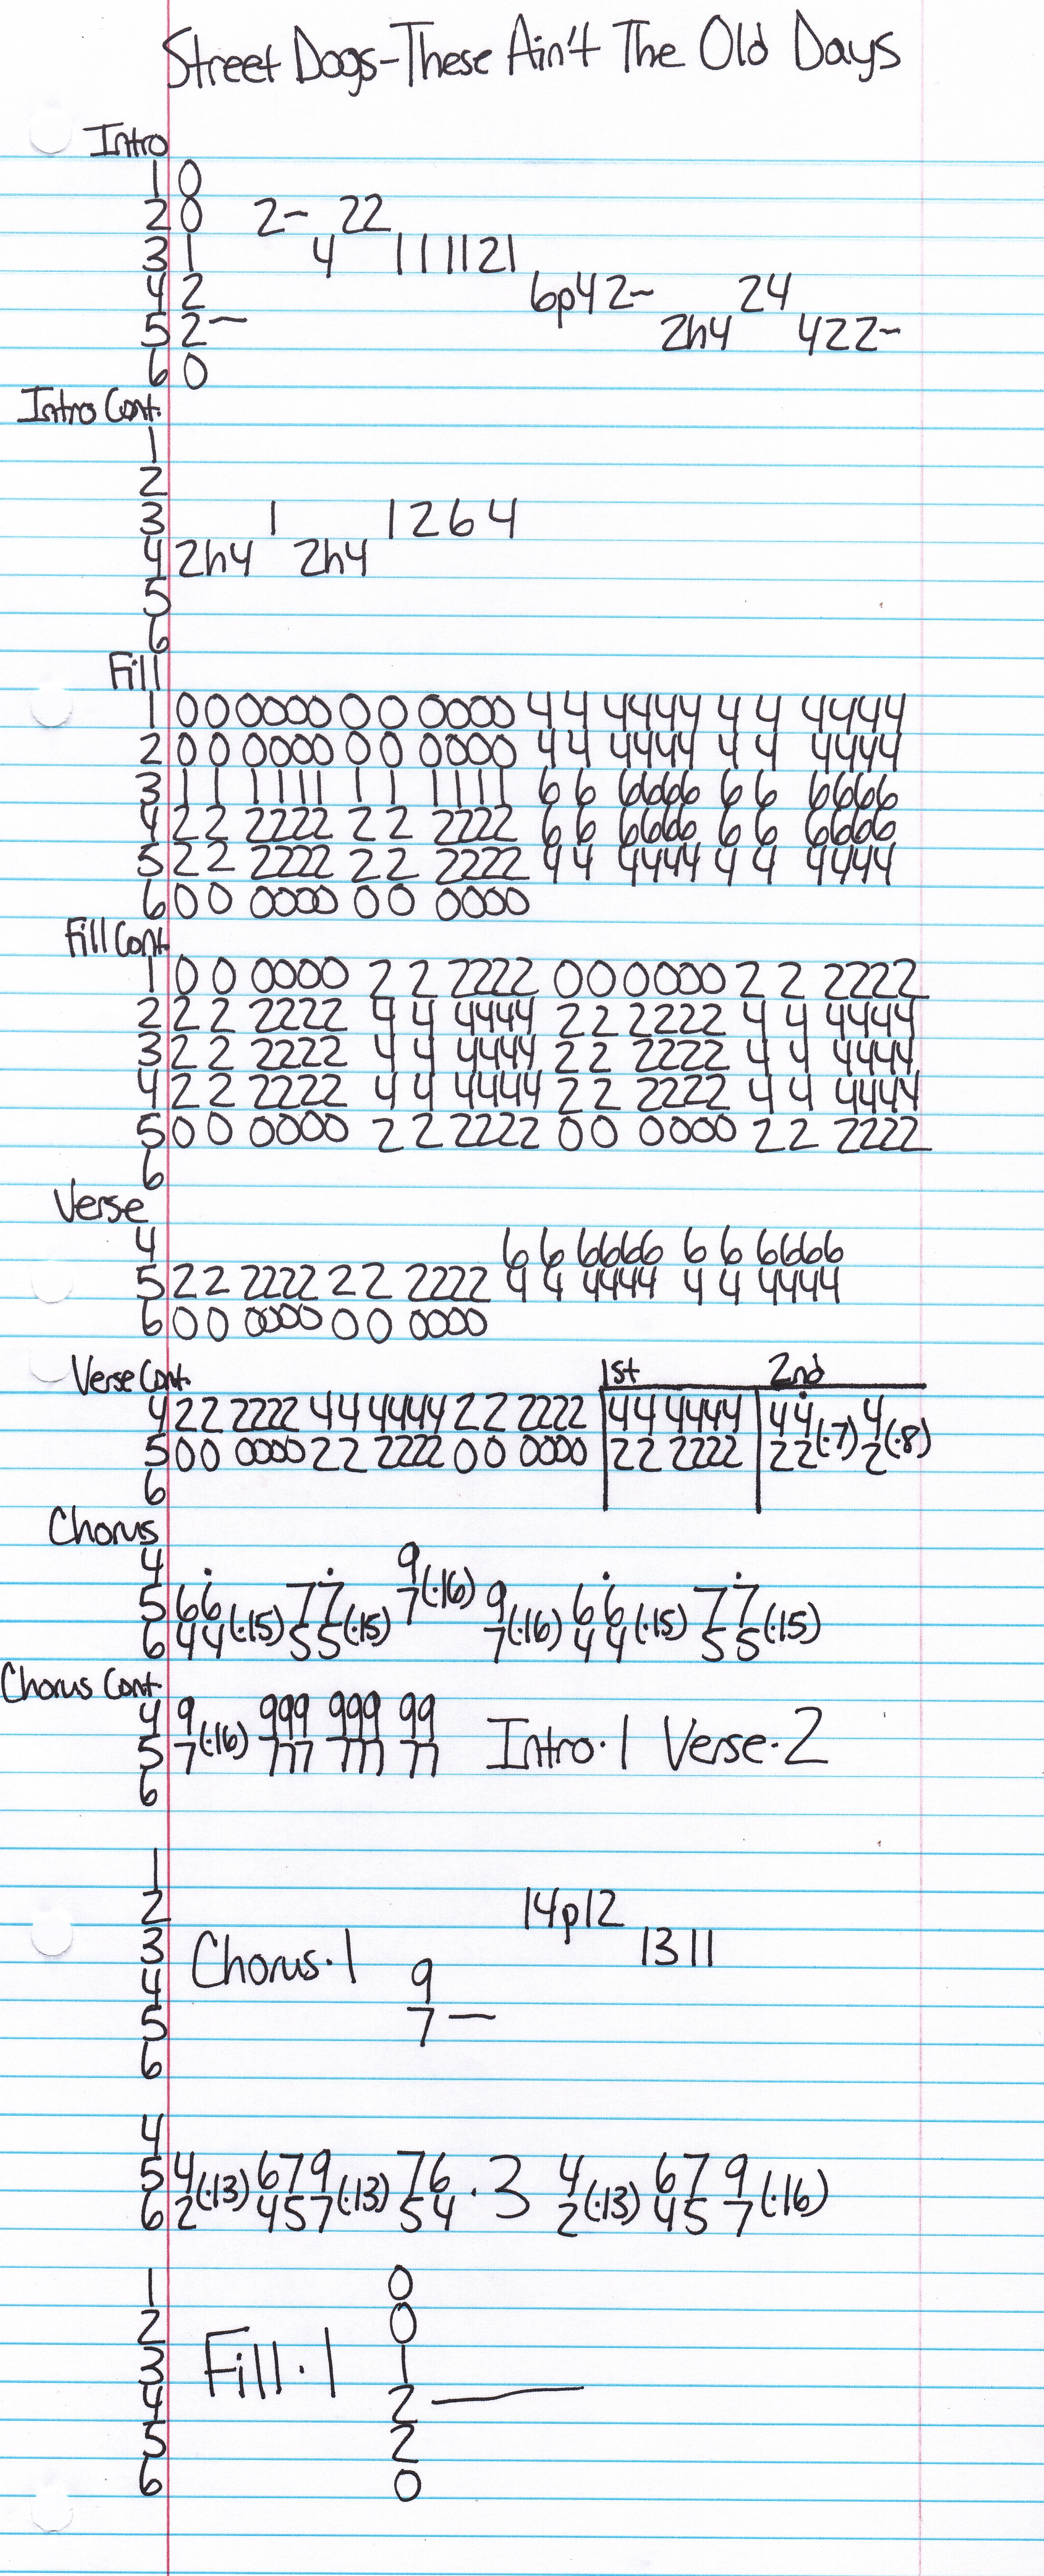 Street Dogs-These Ain't The Old Days
Intro
1 0
2 0 2~ 22
3 1 4 1111121
4 2 6p42~ 24
5 2~ 2h4 422~
6 0
Intro Cont.
1
2
3 1 1264
4 2h4 2h4
5
6
Fill
1 0 0 0000 0 0 0000 4 4 4444 4 4 4444
2 0 0 0000 0 0 0000 4 4 4444 4 4 4444
3 1 1 1111 1 1 1111 6 6 6666 6 6 6666
4 2 2 2222 2 2 2222 6 6 6666 6 6 6666
5 2 2 2222 2 2 2222 4 4 4444 4 4 4444
6 0 0 0000 0 0 0000
Fill Cont.
1 0 0 0000 2 2 2222 0 0 0000 2 2 2222
2 2 2 2222 4 4 4444 2 2 2222 4 4 4444
3 2 2 2222 4 4 4444 2 2 2222 4 4 4444
4 2 2 2222 4 4 4444 2 2 2222 4 4 4444
5 0 0 0000 2 2 2222 0 0 0000 2 2 2222
6
Verse
4 6 6 6666 6 6 6666
5 2 2 2222 2 2 2222 4 4 4444 4 4 4444
6 0 0 0000 0 0 0000
Verse Cont. 1st 2nd
4 22 2222 44 4444 22 2222 44 4444 44(·7) 4(·8)
5 00 0000 22 2222 00 0000 22 2222 22 2
6
Chorus
4 9(·16)
5 66(·15) 77(·15) 7 9(·16) 66(·15) 77(·15)
6 44 55 7 44 55
Chorus Cont.
4 9(·16) 999 999 99 Intro·1 Verse·2
5 7 777 777 77
6
1
2 14p12
3 Chorus·1 1311
4 9
5 7—
6
4
5 4(·13) 679(·13) 76 ·3 4(·13) 67 9(·16)
6 2 457 54 2 45 7
1 0
2 0
3 Fill·1 1
4 2—
5 2
6 0